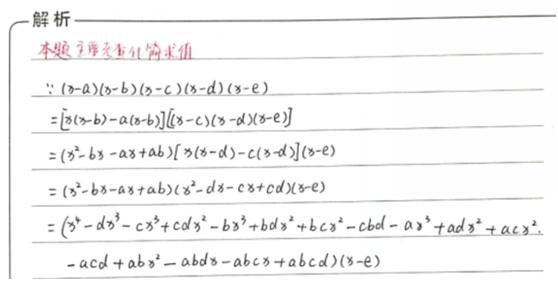 解析
本题主要考查化简求值
∵ (x-a)(x-b)(x-c)(x-d)(x-e)
=[x(x-b)-a(x-b)][(x-c)(x-d)(x-e)]
=(x²-bx-ax+ab)[x(x-d)-c(x-d)](x-e)
=(x²-bx-ax+ab)(x²-dx-cx+cd)(x-e)
=(x⁴-dx³-cx³+cdx²-bx³+bdx²+bcx²-cbd-ax³+adx²+acx².
-acd+abx²-abdx-abcx+abcd)(x-e)